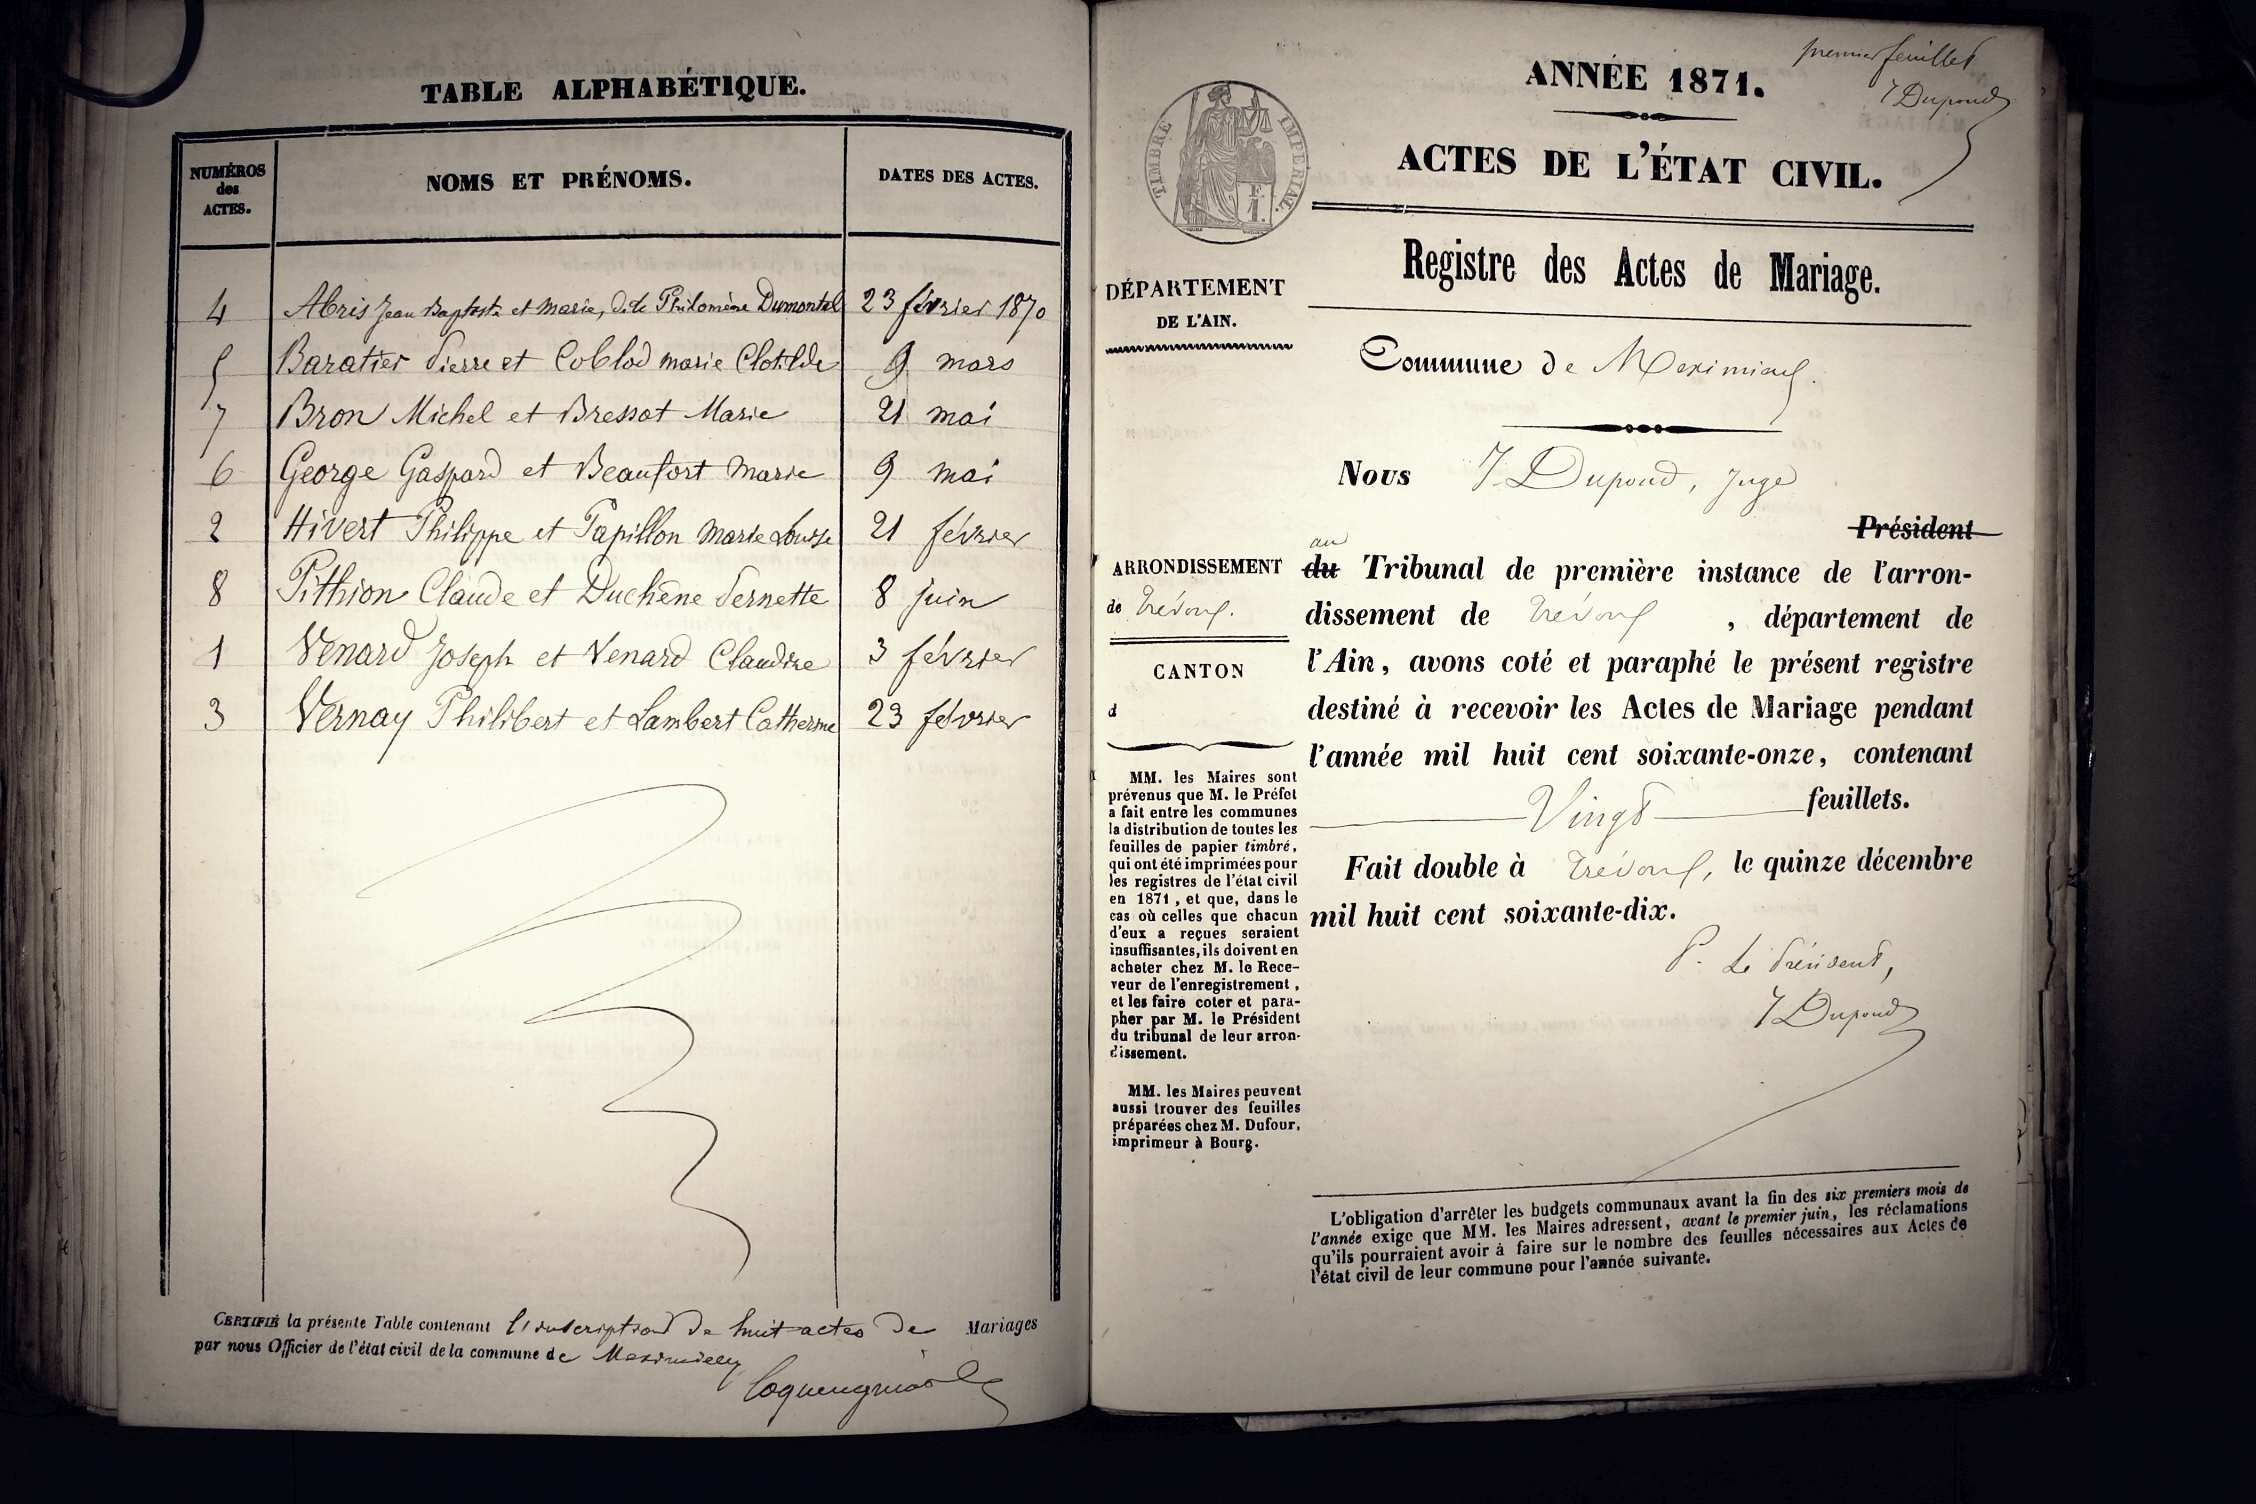 TABLE ALPHABÉTIQUE.
NUMÉROS des ACTES. NOMS ET PRÉNOMS. DATES DES ACTES.
4 Abris Jean Baptiste et Marie, dite Philomène Dumontel 23 février 1870
5 Baratier Pierre et Coblod marie Clotilde 9 mars
7 Bron Michel et Bressat Marie 21 mai
6 George Gaspard et Beaufort Marie 9 mai
2 Hivert Philippe et Papillon Marie Louise 21 février
8 Pithion Claude et Duchêne Pernette 8 juin
1 Venard Joseph et Venard Claudine 3 février
3 Vernay Philibert et Lambert Catherine 23 février
CERTIFIÉ la présente Table contenant l'inscription de huit actes de Mariages
par nous Officier de l'état civil de la commune de Meximieux
premier feuillet
J Dupond
ANNÉE 1871.
ACTES DE L'ÉTAT CIVIL.
TIMBRE IMPÉRIAL.
F.
1.
Registre des Actes de Mariage.
DÉPARTEMENT
DE L'AIN.
Commune de Meximieux.
Nous J Dupond, Juge
Président
au
du Tribunal de première instance de l'arron-
dissement de Trévoux, département de
l'Ain, avons coté et paraphé le présent registre
destiné à recevoir les Actes de Mariage pendant
l'année mil huit cent soixante-onze, contenant
Vingt feuillets.
Fait double à Trévoux, le quinze décembre
mil huit cent soixante-dix.
P. Le Président,
J Dupond
ARRONDISSEMENT
de Trévoux.
CANTON
d
MM. les Maires sont
prévenus que M. le Préfet
a fait entre les communes
la distribution de toutes les
feuilles de papier timbré,
qui ont été imprimées pour
les registres de l'état civil
en 1871, et que, dans le
cas où celles que chacun
d'eux a reçues seraient
insuffisantes, ils doivent en
acheter chez M. le Rece-
veur de l'enregistrement,
et les faire coter et para-
pher par M. le Président
du tribunal de leur arron-
dissement.
MM. les Maires peuvent
aussi trouver des feuilles
préparées chez M. Dufour,
imprimeur à Bourg.
L'obligation d'arrêter les budgets communaux avant la fin des six premiers mois de
l'année exige que MM. les Maires adressent, avant le premier juin, les réclamations
qu'ils pourraient avoir à faire sur le nombre des feuilles nécessaires aux Actes de
l'état civil de leur commune pour l'année suivante.